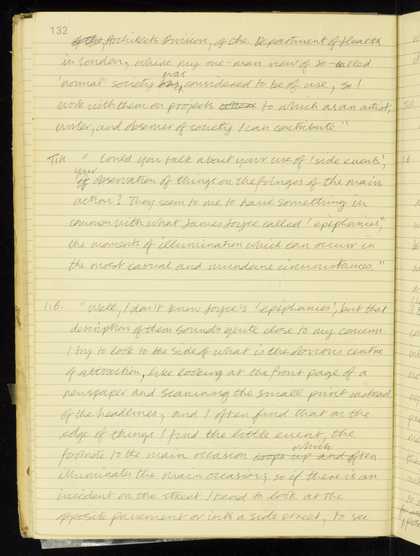 132
of the, Architects Division, of the Department of Health
in London, where my one-man view of so-called
'normal' society was considered to be of use, so I
work with them on projects to which as an artist,
writer, and observer of society I can contribute"
"Could you talk about your use of 'side events',
your
of observation of things on the fringes of the main
action? They seem to me to have something in
common with what James Joyce called 'epiphanies',
the moments of illumination which can occur in
the most casual and mundane circumstances."
I.B. "Well, I don't know Joyce's 'epiphanies', but that
description of them sounds quite close to my concern
I try to look to the side of what is the obvious centre
of attraction, like looking at the front page of a
newspaper and scanning the small print instead
of the headlines, and I often find that on the
edge of things I find the little event, the
footnote to the main occasion crops up and often which
illuminates the main occasion, so if there is an
incident on the street I tend to look at the
opposite pavement or into a side street, to see